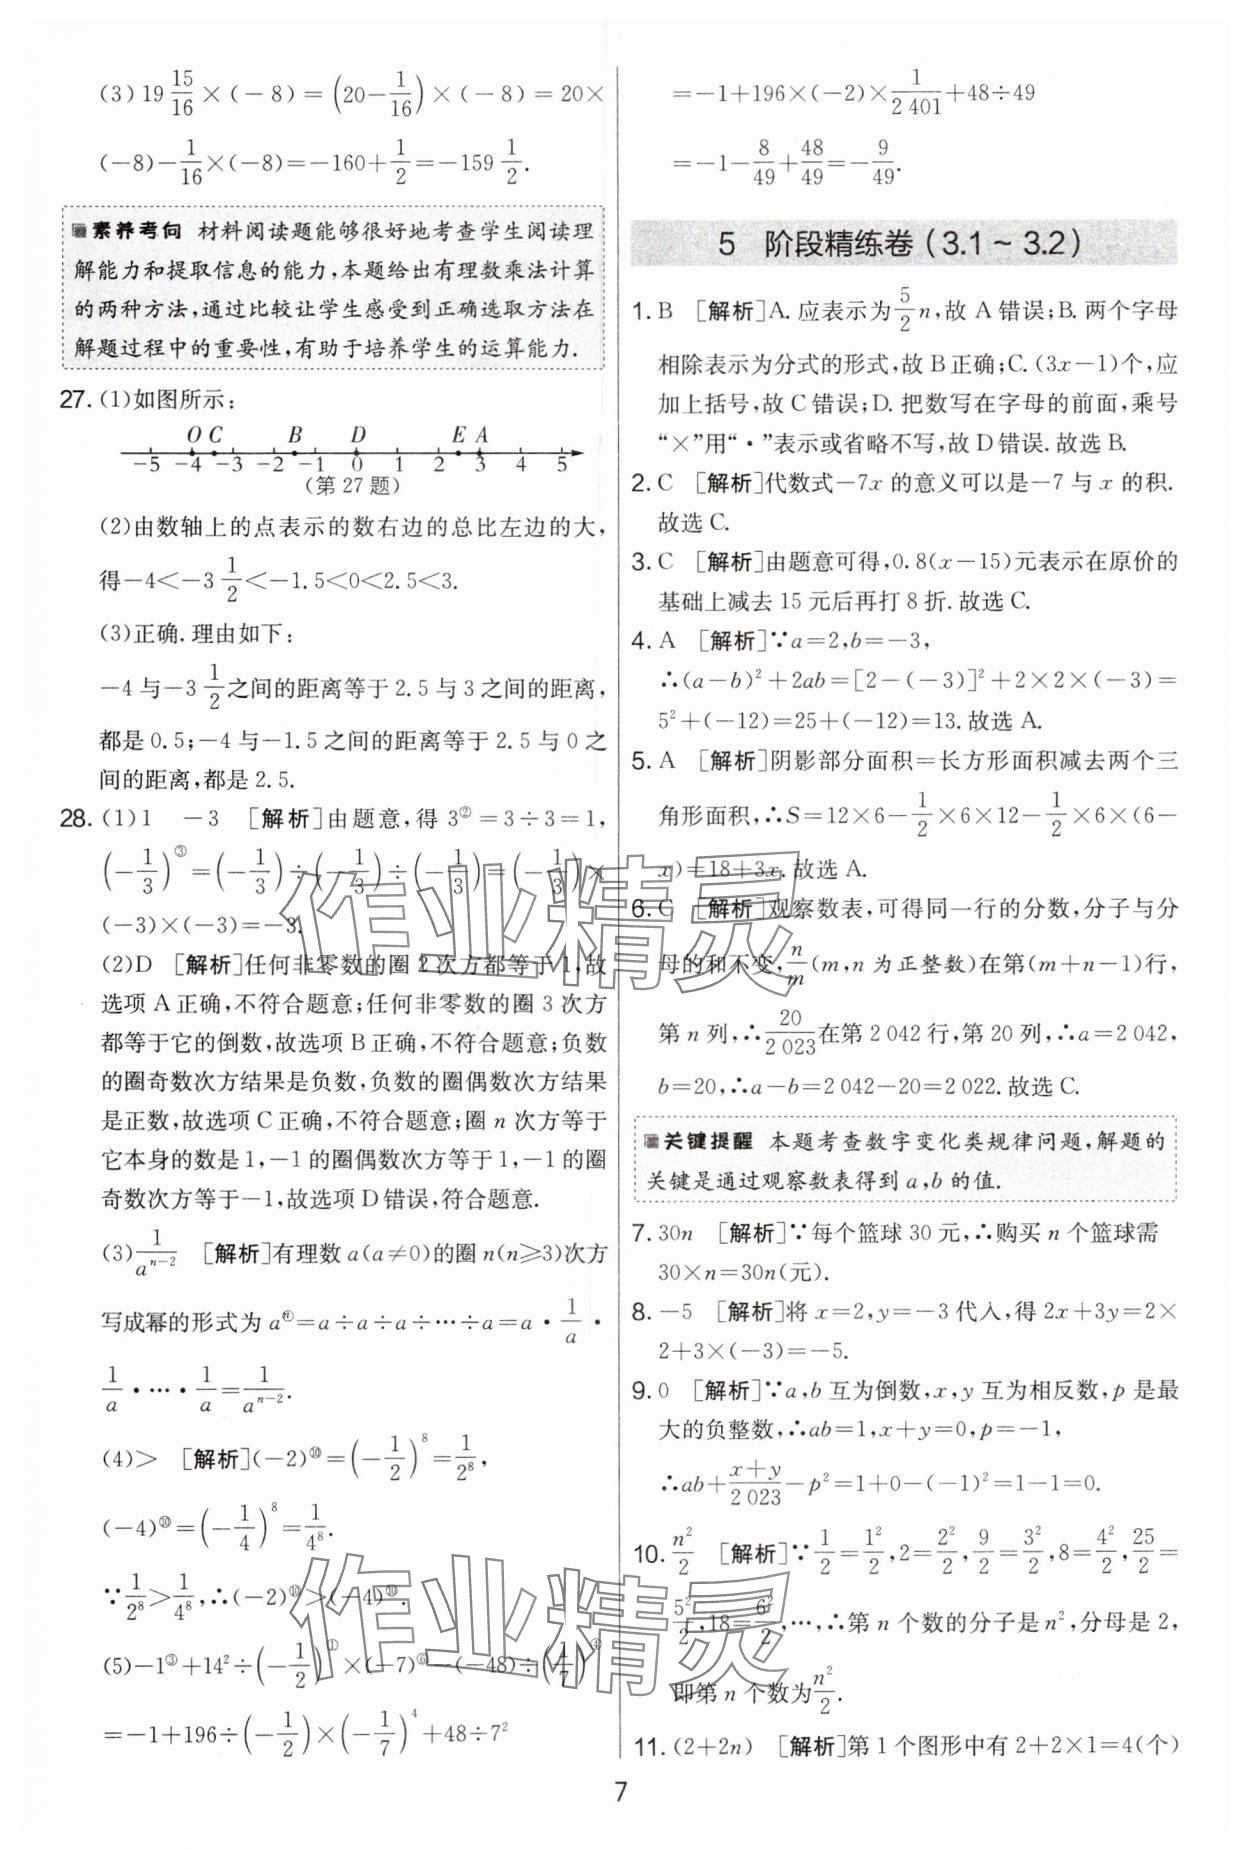 (3)19 15/16×(-8)=(20-1/16)×(-8)=20×
(-8)-1/16×(-8)=-160+1/2=-159 1/2.
素养考向 材料阅读题能够很好地考查学生阅读理
解能力和提取信息的能力,本题给出有理数乘法计算
的两种方法,通过比较让学生感受到正确选取方法在
解题过程中的重要性,有助于培养学生的运算能力.
27.(1)如图所示:
O C B D E A
-5 -4 -3 -2 -1 0 1 2 3 4 5
(第27题)
(2)由数轴上的点表示的数右边的总比左边的大,
得-4<-3 1/2<-1.5<0<2.5<3.
(3)正确.理由如下:
-4与-3 1/2之间的距离等于2.5与3之间的距离,
都是0.5;-4与-1.5之间的距离等于2.5与0之
间的距离,都是2.5.
28.(1)1 -3 [解析]由题意,得3^②=3÷3=1,
(-1/3)^③=(-1/3)÷(-1/3)÷(-1/3)=(-1/3)×
(-3)×(-3)=-3.
(2)D [解析]任何非零数的圈2次方都等于1,故
选项A正确,不符合题意;任何非零数的圈3次方
都等于它的倒数,故选项B正确,不符合题意;负数
的圈奇数次方结果是负数,负数的圈偶数次方结果
是正数,故选项C正确,不符合题意;圈n次方等于
它本身的数是1,-1的圈偶数次方等于1,-1的圈
奇数次方等于-1,故选项D错误,符合题意.
(3)1/a^(n-2) [解析]有理数a(a≠0)的圈n(n≥3)次方
写成幂的形式为a^ⓝ=a÷a÷a÷…÷a=a·1/a·
1/a·…·1/a=1/a^(n-2).
(4)> [解析](-2)^⑩=(-1/2)^8=1/2^8,
(-4)^⑩=(-1/4)^8=1/4^8.
∵1/2^8>1/4^8,∴(-2)^⑩>(-4)^⑩.
(5)-1^③+14²÷(-1/2)^①×(-7)^⑥-(-48)÷(1/7)^④
=-1+196÷(-1/2)×(-1/7)^4+48÷7²
=-1+196×(-2)×1/2 401+48÷49
=-1-8/49+48/49=-9/49.
5 阶段精练卷(3.1~3.2)
1. B [解析]A.应表示为5/2n,故A错误;B.两个字母
相除表示为分式的形式,故B正确;C.(3x-1)个,应
加上括号,故C错误;D.把数写在字母的前面,乘号
“×”用“·”表示或省略不写,故D错误.故选B.
2. C [解析]代数式-7x的意义可以是-7与x的积.
故选C.
3. C [解析]由题意可得,0.8(x-15)元表示在原价的
基础上减去15元后再打8折.故选C.
4. A [解析]∵a=2,b=-3,
∴(a-b)²+2ab=[2-(-3)]²+2×2×(-3)=
5²+(-12)=25+(-12)=13.故选A.
5. A [解析]阴影部分面积=长方形面积减去两个三
角形面积,∴S=12×6-1/2×6×12-1/2×6×(6-
x)=18+3x.故选A.
6. C [解析]观察数表,可得同一行的分数,分子与分
母的和不变,n/m(m,n为正整数)在第(m+n-1)行,
第n列,∴20/2 023在第2 042行,第20列,∴a=2 042,
b=20,∴a-b=2 042-20=2 022.故选C.
关键提醒 本题考查数字变化类规律问题,解题的
关键是通过观察数表得到a,b的值.
7. 30n [解析]∵每个篮球30元,∴购买n个篮球需
30×n=30n(元).
8. -5 [解析]将x=2,y=-3代入,得2x+3y=2×
2+3×(-3)=-5.
9. 0 [解析]∵a,b互为倒数,x,y互为相反数,p是最
大的负整数,∴ab=1,x+y=0,p=-1,
∴ab+(x+y)/2 023-p²=1+0-(-1)²=1-1=0.
10. n²/2 [解析]∵1/2=1²/2,2=2²/2,9/2=3²/2,8=4²/2,25/2=
5²/2,18=6²/2,…,∴第n个数的分子是n²,分母是2,
即第n个数为n²/2.
11. (2+2n) [解析]第1个图形中有2+2×1=4(个)
7
作业精灵
作业精灵